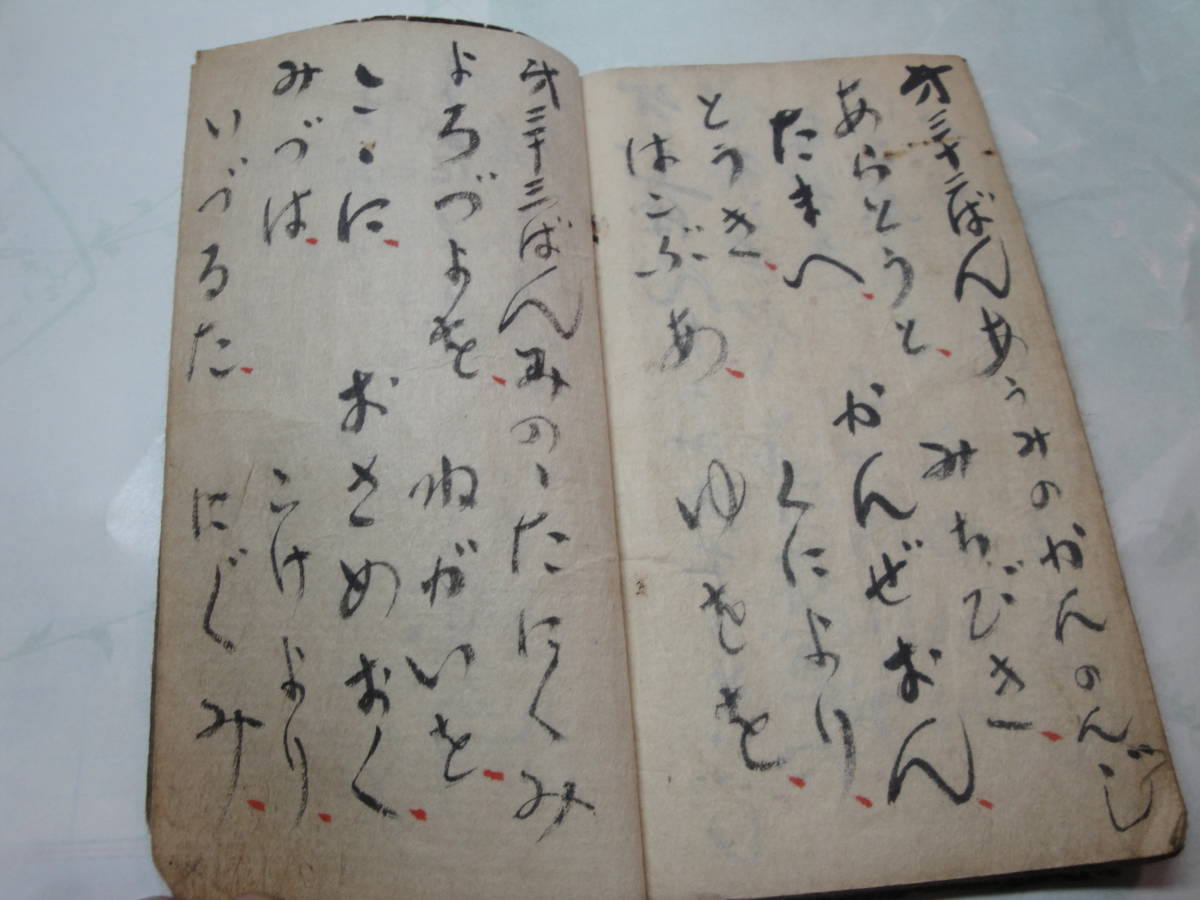 才三十二ばんあうみのかんのんじ
あらとうと、みちびき、
たまへ、かんぜおん、
とうき、くにより、
はこぶあ、ゆミを、
才三十三ばんみのゝたにくみ
よろづよを、ねがいを、
こゝに、おさめおく、
みづは、こけより、
いづるた、にぐみ、